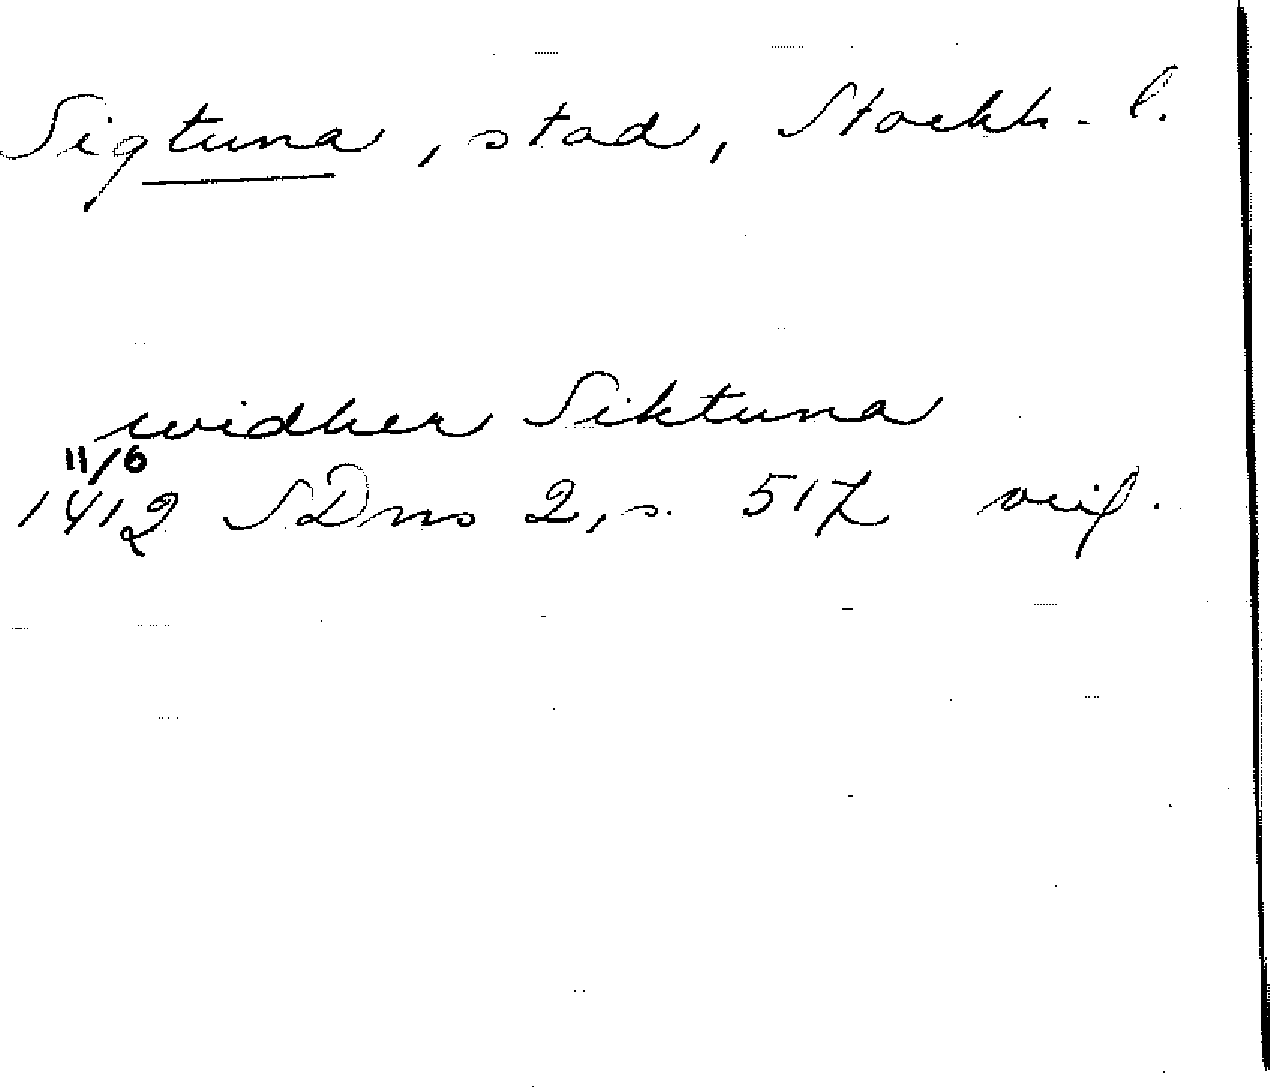 Sigtuna, stad, Stockh. l.
widher Siktuna
11/6
1412 SDns 2, s. 517 orig.